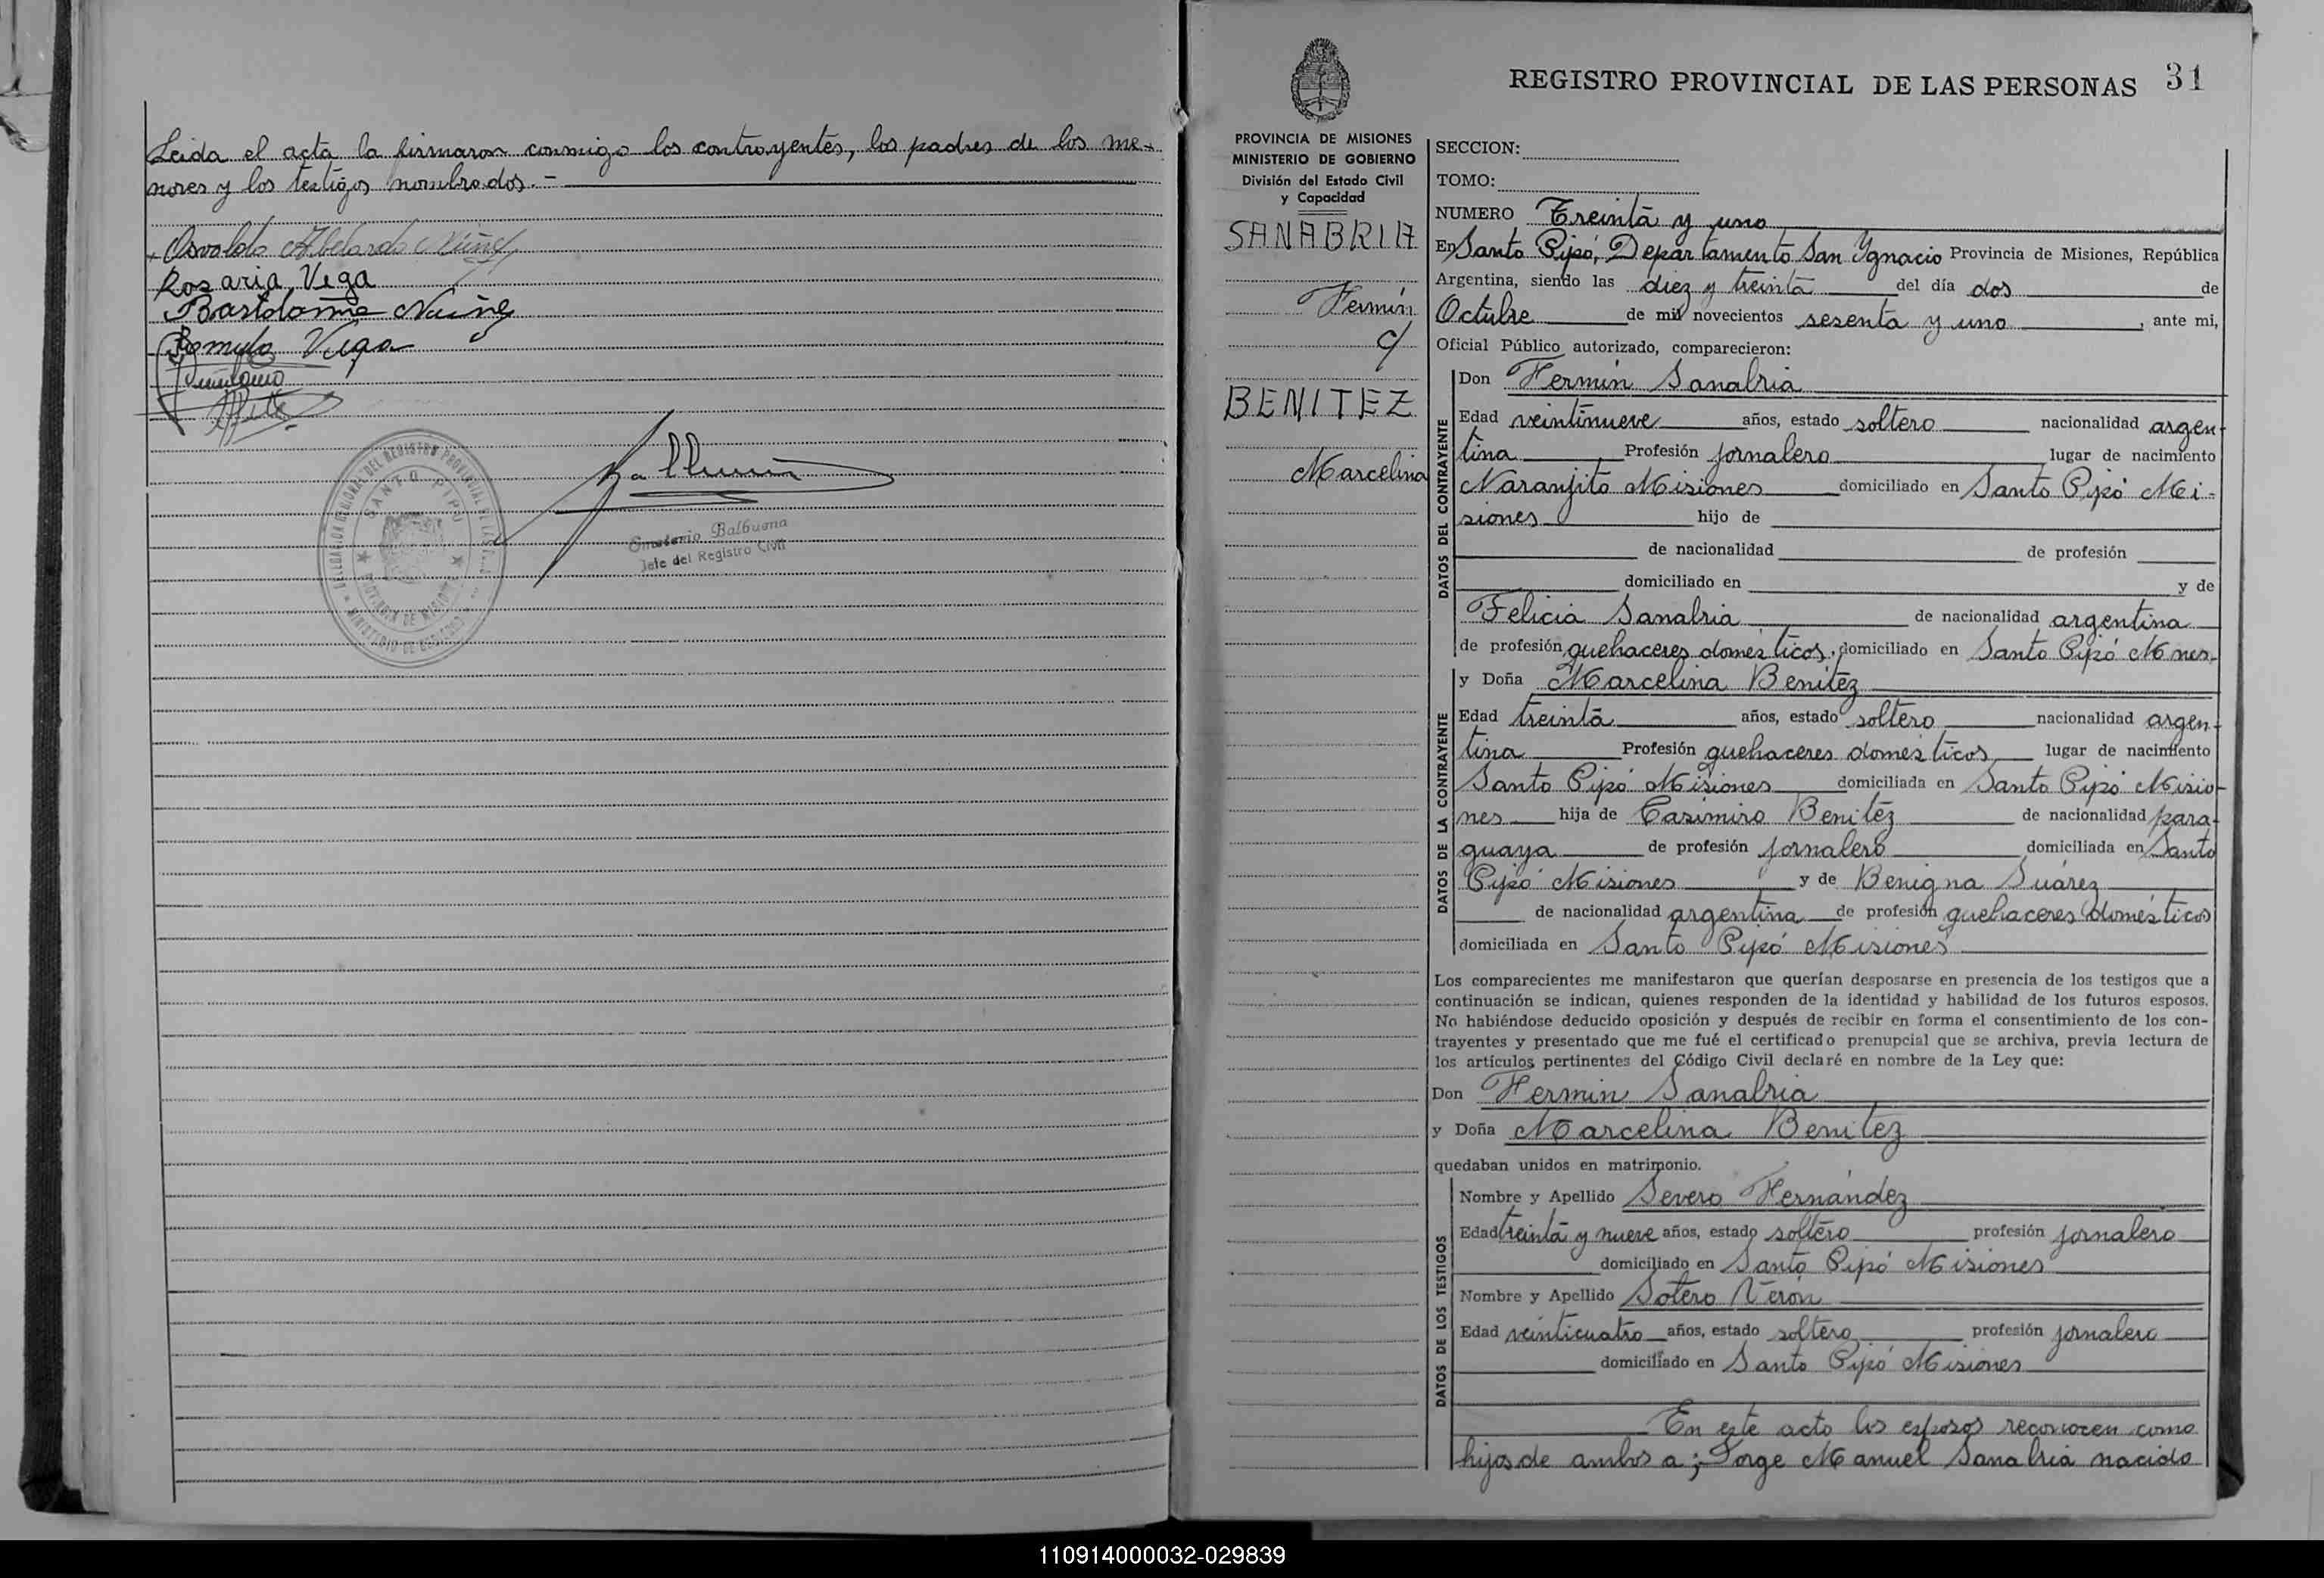 Leida el acta la firmaron conmigo los contrayentes, los padres de los me-
nores y los testigos nombrados.-
Osvaldo Abelardo Núñez
Rosaria Vega
Bartolome Nuñez
Romulo Vega
DELEGACION REGIONAL DEL REGISTRO PROVINCIAL DE LAS
SANTO PIPO
PROVINCIA DE MISIONES
MINISTERIO DE GOBIERNO
Balbuena
Jefe del Registro Civil
REGISTRO PROVINCIAL DE LAS PERSONAS 31
PROVINCIA DE MISIONES
MINISTERIO DE GOBIERNO
División del Estado Civil
y Capacidad
SANABRIA
Fermín
c/
BENITEZ
Marcelina
SECCION:
TOMO:
NUMERO Treinta y uno
En Santo Pipó, Departamento San Ygnacio Provincia de Misiones, República
Argentina, siendo las diez y treinta del día dos de
Octubre de mil novecientos sesenta y uno, ante mi,
Oficial Público autorizado, comparecieron:
DATOS DEL CONTRAYENTE
Don Fermín Sanabria
Edad veintinueve años, estado soltero nacionalidad argen-
tina Profesión jornalero lugar de nacimiento
Naranjito Misiones domiciliado en Santo Pipó Mi-
siones hijo de
de nacionalidad de profesión
domiciliado en y de
Felicia Sanabria de nacionalidad argentina
de profesión quehaceres domésticos, domiciliado en Santo Pipó Mnes.
DATOS DE LA CONTRAYENTE
y Doña Marcelina Benitez
Edad treinta años, estado soltero nacionalidad argen-
tina Profesión quehaceres domésticos lugar de nacimiento
Santo Pipó Misiones domiciliada en Santo Pipó Misio-
nes hija de Casimiro Benitez de nacionalidad para-
guaya de profesión jornalero domiciliada en Santo
Pipó Misiones y de Benigna Suárez
de nacionalidad argentina de profesión quehaceres domésticos
domiciliada en Santo Pipó Misiones
Los comparecientes me manifestaron que querían desposarse en presencia de los testigos que a
continuación se indican, quienes responden de la identidad y habilidad de los futuros esposos.
No habiéndose deducido oposición y después de recibir en forma el consentimiento de los con-
trayentes y presentado que me fué el certificado prenupcial que se archiva, previa lectura de
los artículos pertinentes del Código Civil declaré en nombre de la Ley que:
Don Fermin Sanabria
y Doña Marcelina Benitez
quedaban unidos en matrimonio.
DATOS DE LOS TESTIGOS
Nombre y Apellido Severo Hernández
Edad treinta y nueve años, estado soltero profesión jornalero
domiciliado en Santo Pipó Misiones
Nombre y Apellido Sotero Verón
Edad veinticuatro años, estado soltero profesión jornalero
domiciliado en Santo Pipó Misiones
En este acto los esposos reconocen como
hijos de ambos a; Jorge Manuel Sanabria nacido
110914000032-029839